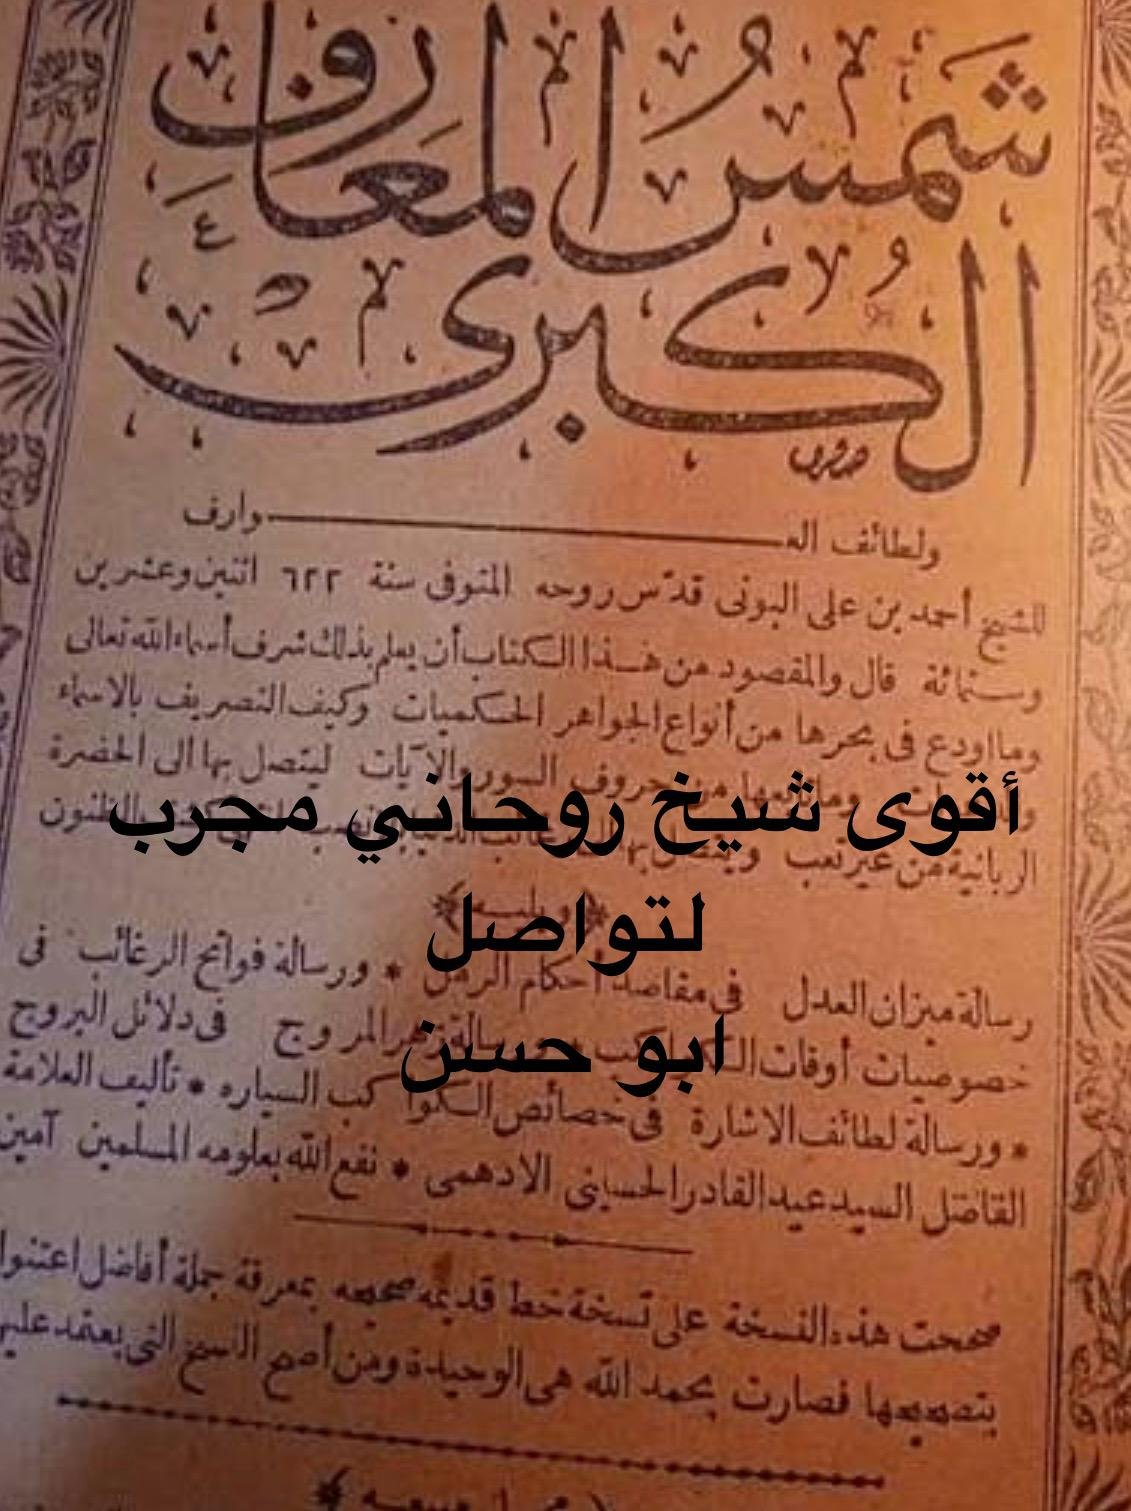 شمس المعارف
الكبرى
ولطائف العوارف
للشيخ أحمد بن على البونى قدّس روحه المتوفى سنة ٦٢٢ اثنين وعشرين
وستمائة قال والمقصود من هذا الكتاب أن يعلم بذلك شرف أسماء الله تعالى
وما اودع فى بحرها من أنواع الجواهر الحكميات وكيف التصريف بالاسماء
حروف السور والآيات ليتصل بها الى الحضرة
أقوى شيخ روحاني مجرب
الربانية من غير تعب
لتواصل
رسالة ميزان العدل فى مقاصد أحكام الرمل * ورسالة فواتح الرغائب فى
ابو حسن
خصوصيات أوقات فى دلائل البروج
* ورسالة لطائف الاشارة فى خصائص الكواكب السياره * تأليف العلامة
الفاضل السيد عبد القادر الحسينى الادهمى * نفع الله بعلومه المسلمين آمين
صححت هذه النسخة على نسخة خط قديمه صحيحه بمعرفة جملة أفاضل اعتنوا
بتصحيحها فصارت بحمد الله هى الوحيدة ومن أصح النسخ التى يعتمد عليها